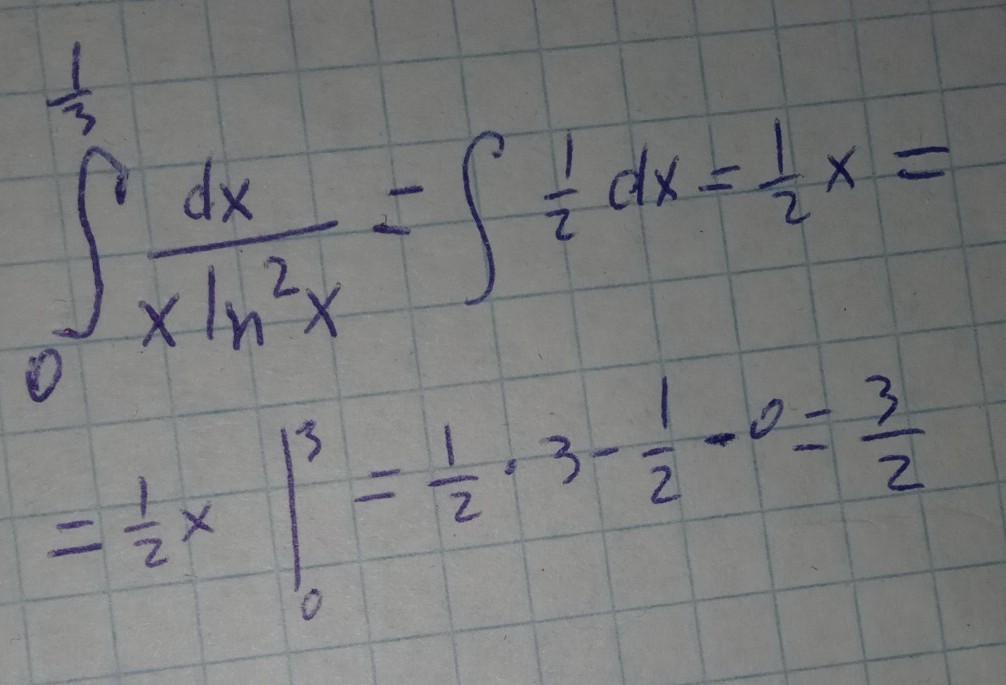 ∫₀^{1/3} dx / (x ln² x) = ∫ 1/2 dx = 1/2 x =
= 1/2 x |₀³ = 1/2 · 3 - 1/2 - 0 = 3/2